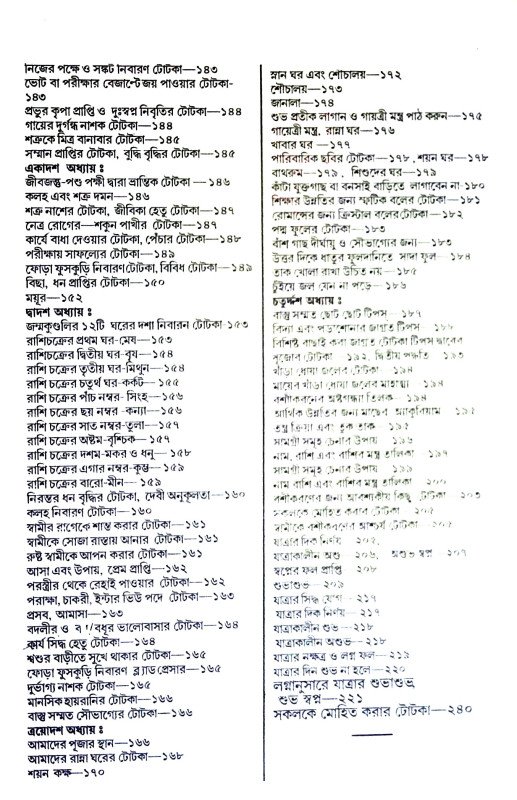 নিজের পক্ষে ও সঙ্কট নিবারণ টোটকা—১৪৩
ভোট বা পরীক্ষার বেজাল্টে জয় পাওয়ার টোটকা-
১৪৩
প্রভুর কৃপা প্রাপ্তি ও দুঃস্বপ্ন নিবৃতির টোটকা—১৪৪
গায়ের দুর্গন্ধ নাশক টোটকা—১৪৪
শত্রুকে মিত্র বানাবার টোটকা—১৪৫
সম্মান প্রাপ্তির টোটকা, বুদ্ধি বৃদ্ধির টোটকা—১৪৫
একাদশ অধ্যায় ঃ
জীবজন্তু-পশু পক্ষী দ্বারা ভ্রান্তিক টোটকা —১৪৬
কলহ এবং শত্রু দমন—১৪৬
শত্রু নাশের টোটকা, জীবিকা হেতু টোটকা—১৪৭
নেত্র রোগের—শকুন পাখীর টোটকা—১৪৭
কার্যে বাধা দেওয়ার টোটকা, পেঁচার টোটকা—১৪৮
পরীক্ষায় সাফল্যের টোটকা—১৪৯
ফোড়া ফুসকুড়ি নিবারণ টোটকা, বিবিধ টোটকা—১৪৯
বিছা, ধন প্রাপ্তির টোটকা—১৫০
ময়ূর—১৫২
দ্বাদশ অধ্যায় ঃ
জন্মকুণ্ডলির ১২টি ঘরের দশা নিবারন টোটকা-১৫৩
রাশিচক্রের প্রথম ঘর-মেষ—১৫৩
রাশিচক্রের দ্বিতীয় ঘর-বৃষ—১৫৪
রাশি চক্রের তৃতীয় ঘর-মিথুন—১৫৪
রাশি চক্রের চতুর্থ ঘর-কর্কট —১৫৫
রাশি চক্রের পাঁচ নম্বর- সিংহ—১৫৬
রাশি চক্রের ছয় নম্বর -কন্যা—১৫৬
রাশি চক্রের সাত নম্বর-তুলা—১৫৭
রাশি চক্রের অষ্টম-বৃশ্চিক—১৫৭
রাশি চক্রের দশম-মকর ও ধনু—১৫৮
রাশি চক্রের এগার নম্বর-কুম্ভ—১৫৯
রাশি চক্রের বারো-মীন—১৫৯
নিরন্তর ধন বৃদ্ধির টোটকা, দেবী অনুকূলতা—১৬০
কলহ নিবারণ টোটকা—১৬০
স্বামীর রাগকে শান্ত করার টোটকা—১৬১
স্বামীকে সোজা রাস্তায় আনার টোটকা—১৬১
রুষ্ট স্বামীকে আপন করার টোটকা—১৬১
আসা এবং উপায়, প্রেম প্রাপ্তি—১৬২
পরস্ত্রীর থেকে রেহাই পাওয়ার টোটকা—১৬২
পরীক্ষা, চাকরী, ইন্টার ভিউ পদে টোটকা—১৬৩
প্রসব, আমাসা—১৬৩
বদলীর ও বধূর ভালোবাসার টোটকা—১৬৪
কার্য সিদ্ধ হেতু টোটকা—১৬৪
শ্বশুর বাড়ীতে সুখে থাকার টোটকা—১৬৫
ফোড়া ফুসকুড়ি নিবারণ ব্লাড প্রেসার—১৬৫
দুর্ভাগ্য নাশক টোটকা—১৬৫
মানসিক হায়রানির টোটকা—১৬৬
বাস্তু সম্মত সৌভাগ্যের টোটকা—১৬৬
ত্রয়োদশ অধ্যায় ঃ
আমাদের পূজার স্থান—১৬৬
আমাদের রান্না ঘরের টোটকা—১৬৮
শয়ন কক্ষ—১৭০
স্নান ঘর এবং শৌচালয়—১৭২
শৌচালয়—১৭৩
জানালা—১৭৪
শুভ প্রতীক লাগান ও গায়ত্রী মন্ত্র পাঠ করুন—১৭৫
গায়েত্রী মন্ত্র, রান্না ঘর—১৭৬
খাবার ঘর —১৭৭
পারিবারিক ছবির টোটকা—১৭৮, শয়ন ঘর—১৭৮
বাথরুম—১৭৯, শিশুদের ঘর—১৭৯
কাঁটা যুক্ত গাছ বা বনসাই বাড়িতে লাগাবেন না-১৮০
শিক্ষার উন্নতির জন্য স্ফটিক বলের টোটকা—১৮১
রোমান্সের জন্য ক্রিস্টাল বলের টোটকা—১৮২
পদ্ম ফুলের টোটকা—১৮৩
বাঁশ গাছ দীর্ঘায়ু ও সৌভাগ্যের জন্য—১৮৩
উত্তর দিকে ধাতুর ফুলদানিতে সাদা ফুল—১৮৪
তাক খোলা রাখা উচিত নয়—১৮৫
চুঁইয়ে জল যেন না পড়ে—১৮৬
চতুর্দ্দশ অধ্যায় ঃ
বাস্তু সম্মত ছোট ছোট টিপস্—১৮৭
বিদ্যা এবং পড়াশোনার জাগত টিপস
বিশিষ্ট বাছাই করা জাগ্রত টোটকা টিপস দ্বারের
পূজোর টোটকা ১৯২, দ্বিতীয় পদ্ধতি ১৯৩
খাঁড়া ধোয়া জলের টোটকা ১৯৪
মায়ের খাঁড়া ধোয়া জলের মাহাত্ম্য ১৯৪
বশীকরনের অষ্টগন্ধা তিলক ১৯৪
আর্থিক উন্নতির জন্য মাছের অ্যাকুরিয়াম ১৯৫
তন্ত্র ক্রিয়া এবং তুক তাক ১৯৫
সামগ্রী সমূহ চেনার উপায় ১৯৬
নাম, রাশি এবং রাশির মন্ত্র তালিকা ১৯৭
সামগ্রী সমূহ চেনার উপায় ১৯৯
নাম রাশি এবং রাশির মন্ত্র তালিকা ২০০
বশীকরণের জন্য আবশ্যকীয় কিছু টোটকা ২০৩
সকলকে মোহিত করার টোটকা
স্বামীকে বশীকরণের আশ্চর্য টোটকা
যাত্রার দিক নির্ণয়
যাত্রাকালীন অশুভ ২০৬, অশুভ স্বপ্ন ২০৭
স্বপ্নের ফল প্রাপ্তি ২০৮
শুভাশুভ—২০৯
যাত্রার সিদ্ধ যোগ—২১৭
যাত্রার দিক নির্ণয়—২১৭
যাত্রাকালীন শুভ—২১৮
যাত্রাকালীন অশুভ—২১৮
যাত্রার নক্ষত্র ও লগ্ন ফল—২১৯
যাত্রার দিন শুভ না হলে—২২০
লগ্নানুসারে যাত্রার শুভাশুভ
শুভ স্বপ্ন—২২১
সকলকে মোহিত করার টোটকা—২৪০